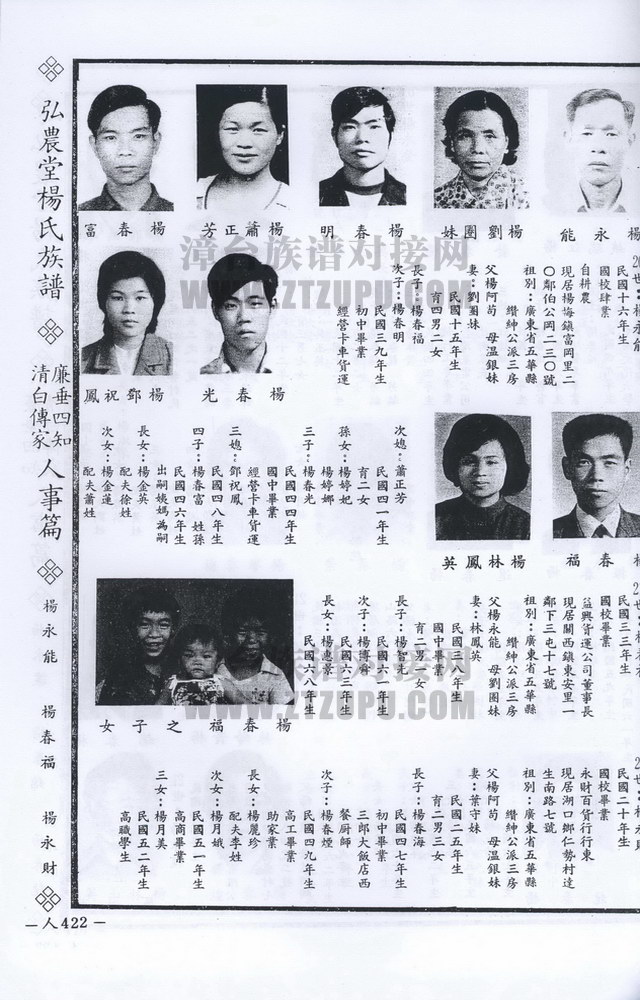 弘農堂楊氏族譜
廉垂四知
清白傳家
人事篇
楊永能
楊春福
楊永財
—人422—
能永楊
妹圍劉楊
明春楊
芳正蕭楊
富春楊
漳台族谱对接网
WWW.ZTZUPU.COM
民國十六年生
國校肄業
自耕農
現居楊梅鎮富岡里二
〇鄰伯公岡二三〇號
祖別：廣東省五華縣
纘紳公派三房
父楊阿苟　母溫銀妹
妻：劉圍妹
民國十五年生
育四男二女
長子：楊春福
次子：楊春明
民國三九年生
初中畢業
經營卡車貨運
光春楊
鳳祝鄧楊
次媳：蕭正芳
民國四一年生
育二女
孫女：楊婷妃
楊婷娜
三子：楊春光
民國四四年生
國中畢業
經營卡車貨運
三媳：鄧祝鳳
民國四八年生
四子：楊春富　姓孫
民國四六年生
出嗣姨媽為嗣
長女：楊金英
配夫徐姓
次女：楊金蓮
配夫蕭姓
福春楊
英鳳林楊
民國三三年生
國校畢業
益興貨運公司董事長
現居關西鎮東安里一
鄰下三屯十七號
祖別：廣東省五華縣
纘紳公派三房
父楊永能　母劉圍妹
妻：林鳳英
民國三八年生
國中畢業
育二男一女
長子：楊智先
民國六一年生
次子：楊博脩
民國六三年生
長女：楊惠景
民國六八年生
女子之福春楊
民國二十年生
國校畢業
永財百貨行行東
現居湖口鄉仁勢村達
生南路七號
祖別：廣東省五華縣
纘紳公派三房
父楊阿苟　母溫銀妹
妻：葉守妹
民國二五年生
育二男三女
長子：楊春海
民國四七年生
初中畢業
三郎大飯店西
餐廚師
次子：楊春煙
民國四九年生
高工畢業
助家業
長女：楊麗珍
配夫李姓
次女：楊月娥
民國五一年生
高商畢業
三女：楊月美
民國五二年生
高職學生